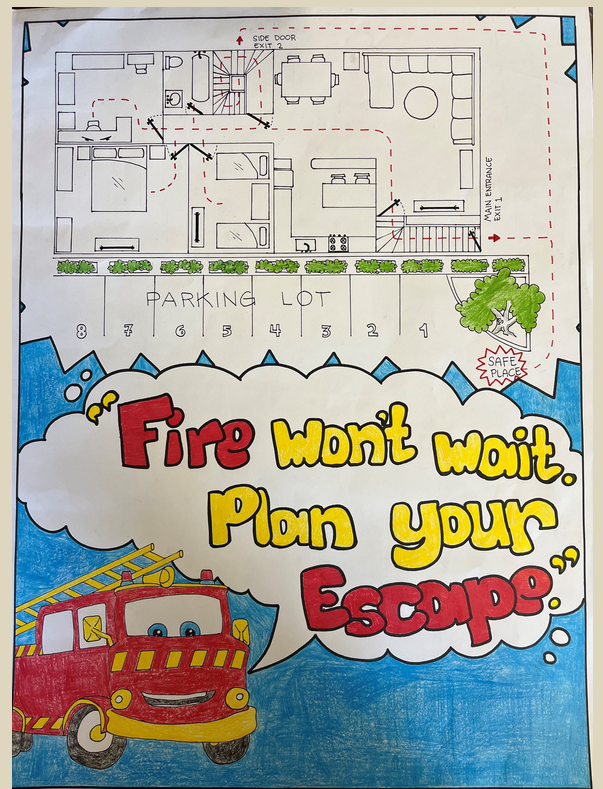 SIDE DOOR
EXIT 2
MAIN ENTRANCE
EXIT 1
PARKING LOT
8 7 6 5 4 3 2 1
SAFE
PLACE
"Fire won't wait.
Plan your
Escape."